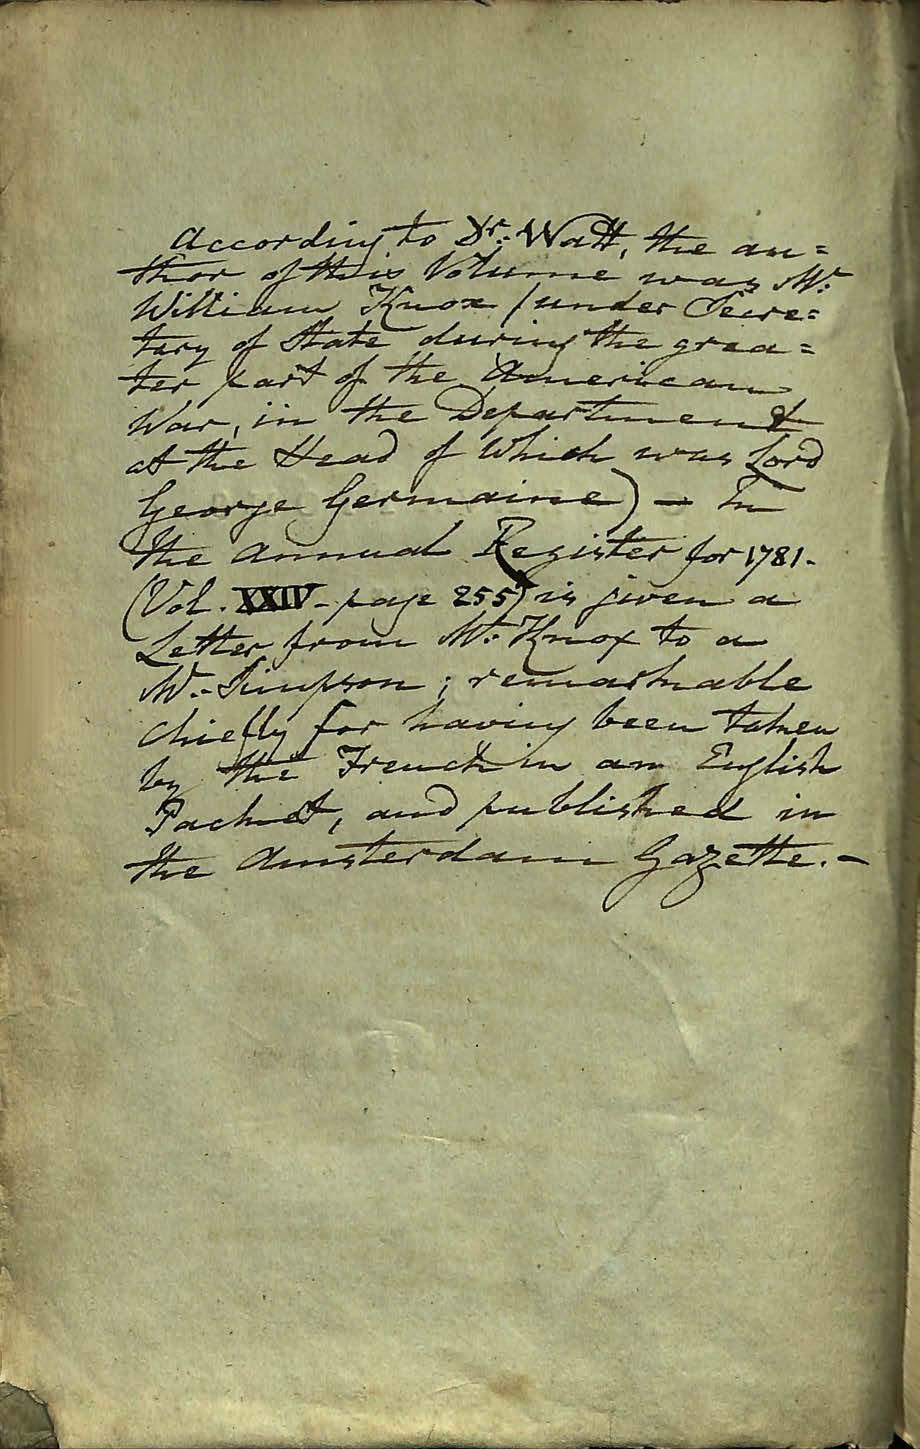 According to Dr. Watt, the au=
thor of this Volume was Mr.
William Knox (under Secre=
tary of State during the grea=
ter part of the American
War, in the Department
at the Head of Which was Lord
George Germaine) — In
the Annual Register for 1781.
(Vol. XXIV - page 255) is given a
Letter from Mr. Knox to a
Mr. Simpson; remarkable
chiefly for having been taken
by the French in an English
Packet, and published in
the Amsterdam Gazette. —